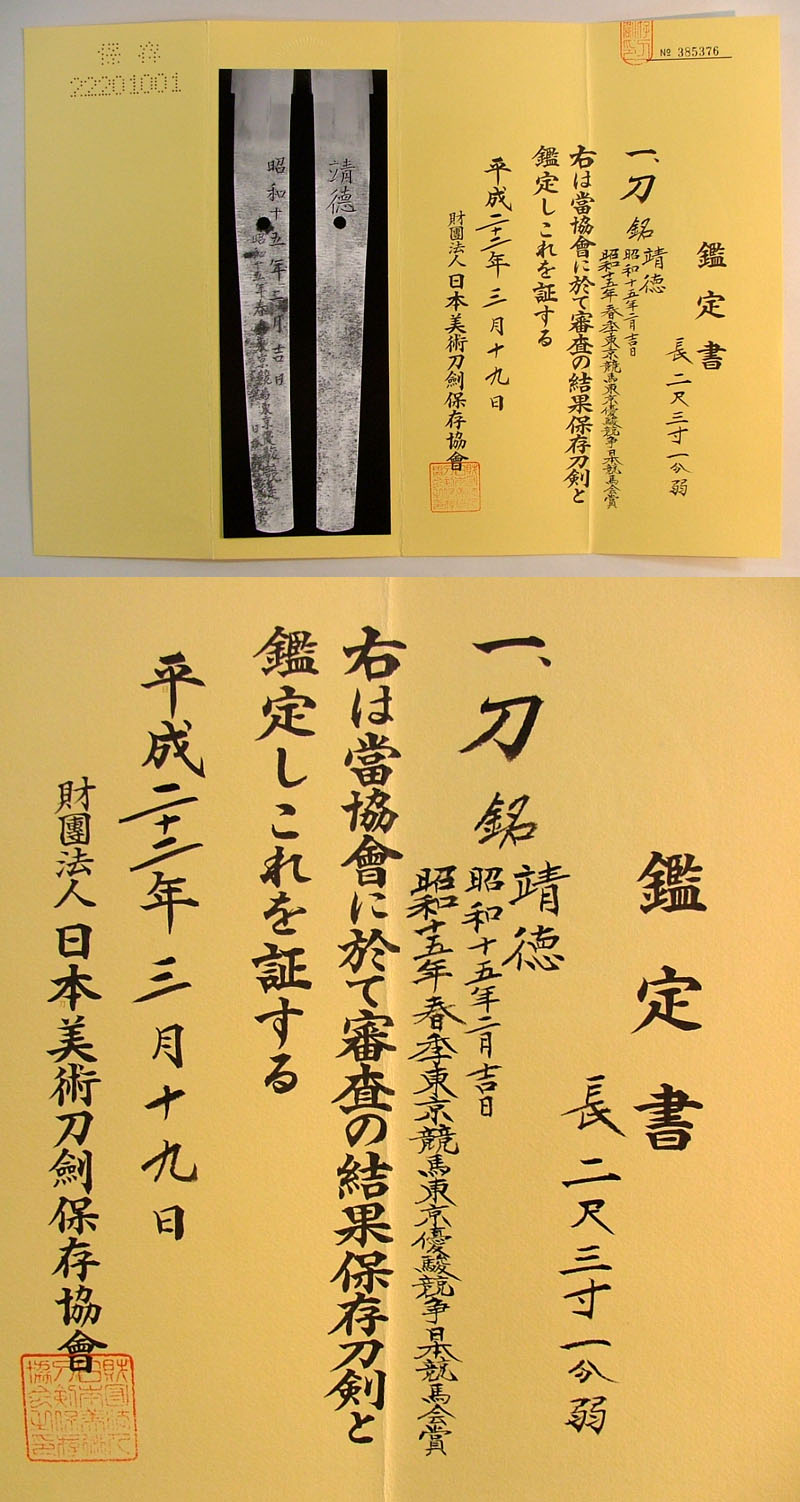 № 385376
鑑定書
長 二尺三寸一分弱
一、刀 銘 靖徳
昭和十五年二月吉日
昭和十五年春季東京競馬東京優駿競争日本競馬会賞
右は當協會に於て審査の結果保存刀剣と
鑑定しこれを証する
平成二十二年三月十九日
財團法人日本美術刀劍保存協會
靖徳
昭和十五年二月吉日
保存
22201001
鑑定書
長 二尺三寸一分弱
一、刀 銘 靖徳
昭和十五年二月吉日
昭和十五年春季東京競馬東京優駿競争日本競馬会賞
右は當協會に於て審査の結果保存刀剣と
鑑定しこれを証する
平成二十二年三月十九日
財團法人日本美術刀劍保存協會